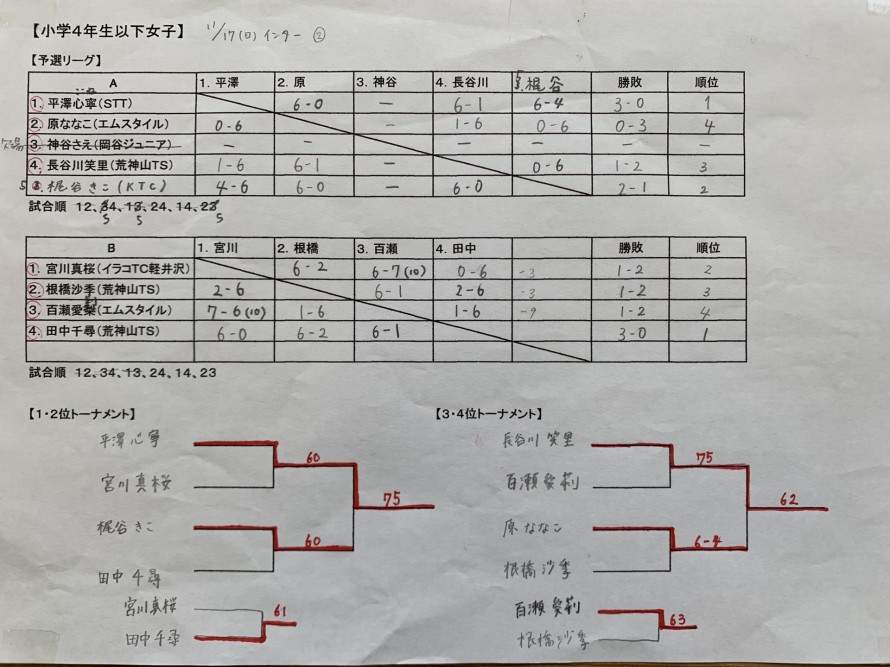 【小学4年生以下女子】 11/17(日) インター ②
【予選リーグ】
A 1. 平澤 2. 原 3. 神谷 4. 長谷川 5. 梶谷 勝敗 順位
1. 平澤心寧(STT) 6-0 — 6-1 6-4 3-0 1
2. 原ななこ(エムスタイル) 0-6 — 1-6 0-6 0-3 4
3. 神谷さえ(岡谷ジュニア) — — — — — —
4. 長谷川笑里(荒神山TS) 1-6 6-1 — 0-6 1-2 3
5 梶谷きこ(KTC) 4-6 6-0 — 6-0 2-1 2
試合順 12、34、13、24、14、23
5 5 5
B 1. 宮川 2. 根橋 3. 百瀬 4. 田中 勝敗 順位
1. 宮川真桜(イラコTC軽井沢) 6-2 6-7(10) 0-6 -3 1-2 2
2. 根橋沙季(荒神山TS) 2-6 6-1 2-6 -3 1-2 3
3. 百瀬愛莉(エムスタイル) 7-6(10) 1-6 1-6 -9 1-2 4
4. 田中千尋(荒神山TS) 6-0 6-2 6-1 3-0 1
試合順 12、34、13、24、14、23
【1・2位トーナメント】 【3・4位トーナメント】
平澤心寧 長谷川笑里
60 75
宮川真桜 百瀬愛莉
75 62
梶谷きこ 原ななこ
60 6-4
田中千尋 根橋沙季
宮川真桜 百瀬愛莉
61 63
田中千尋 根橋沙季